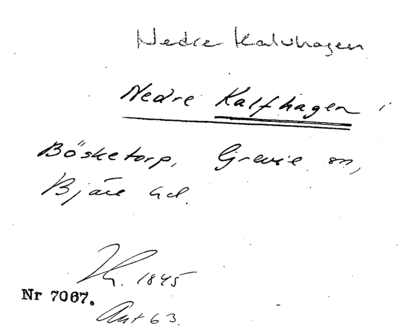 Nedre Kalvhagen
Nedre Kalfhagen i
Bösketorp, Grevie sn,
Bjäre hd.
1845
Nr 7067.
63.